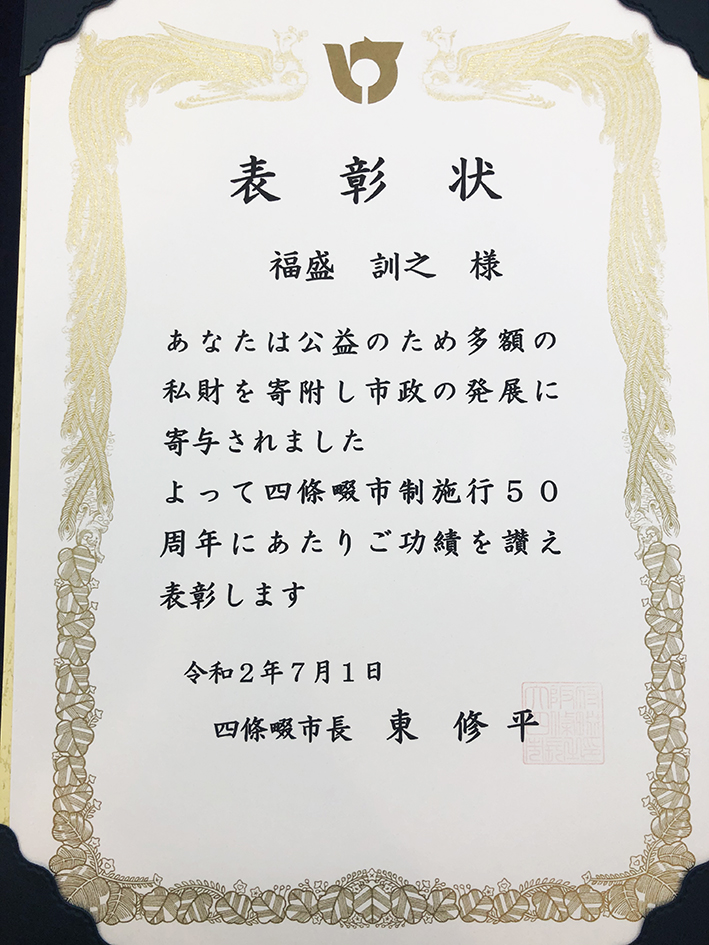 表彰状
福盛 訓之 様
あなたは公益のため多額の
私財を寄附し市政の発展に
寄与されました
よって四條畷市制施行50
周年にあたりご功績を讃え
表彰します
令和2年7月1日
四條畷市長 東 修平